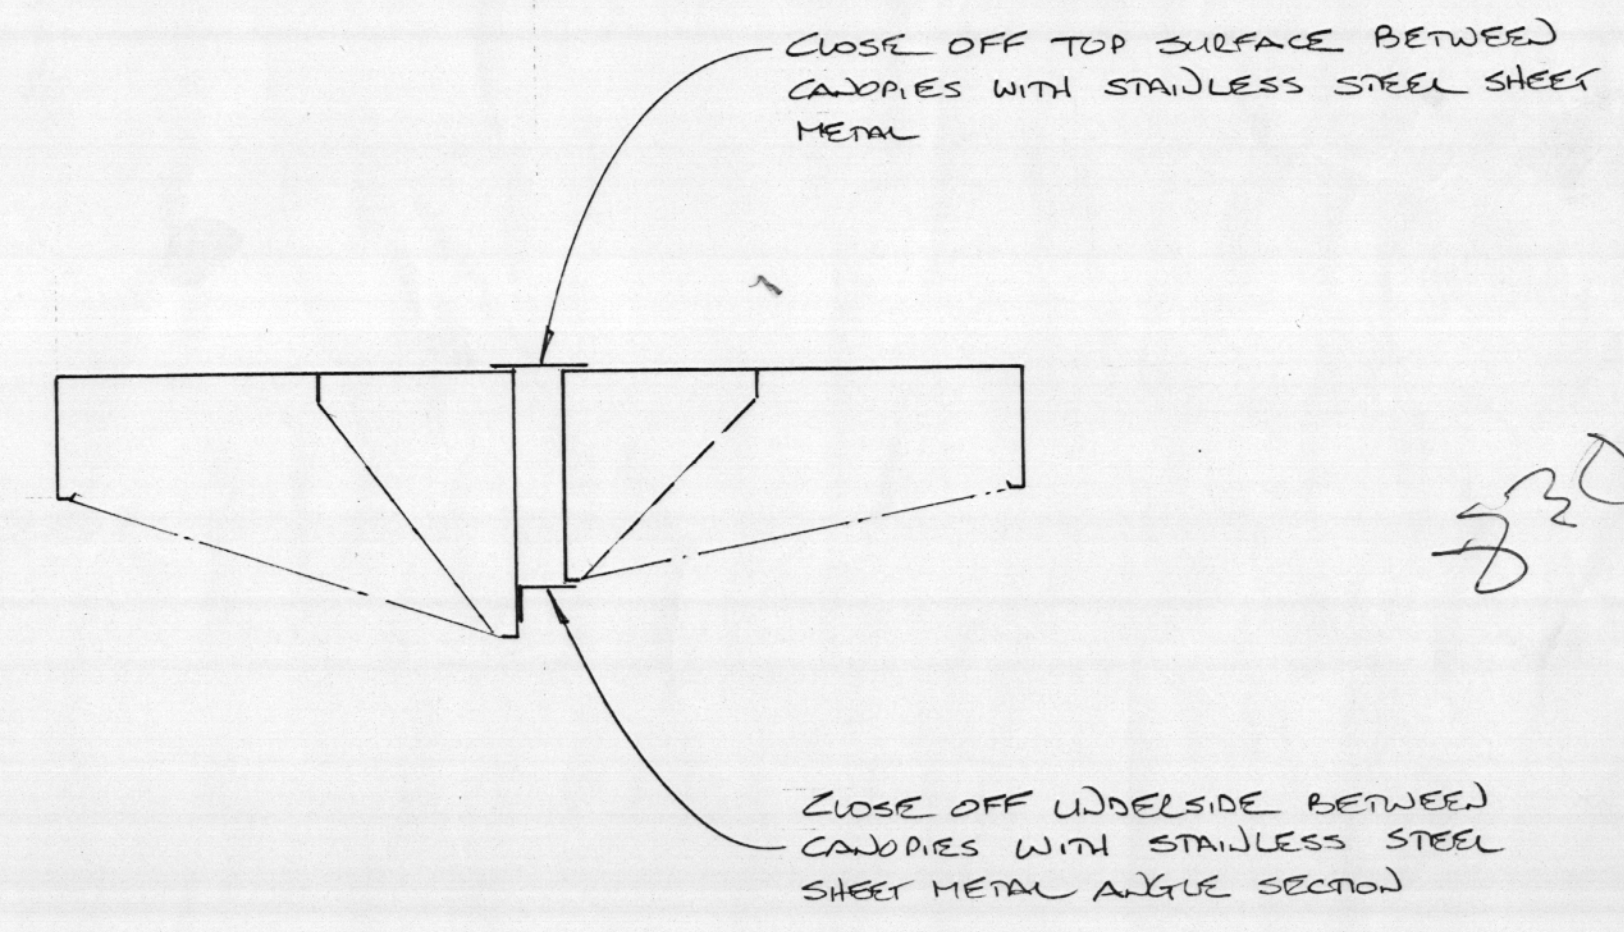 CLOSE OFF TOP SURFACE BETWEEN
CANOPIES WITH STAINLESS STEEL SHEET
METAL
CLOSE OFF UNDERSIDE BETWEEN
CANOPIES WITH STAINLESS STEEL
SHEET METAL ANGLE SECTION